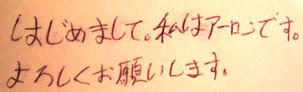 はじめまして。私はアーロンです。
よろしくお願いします。